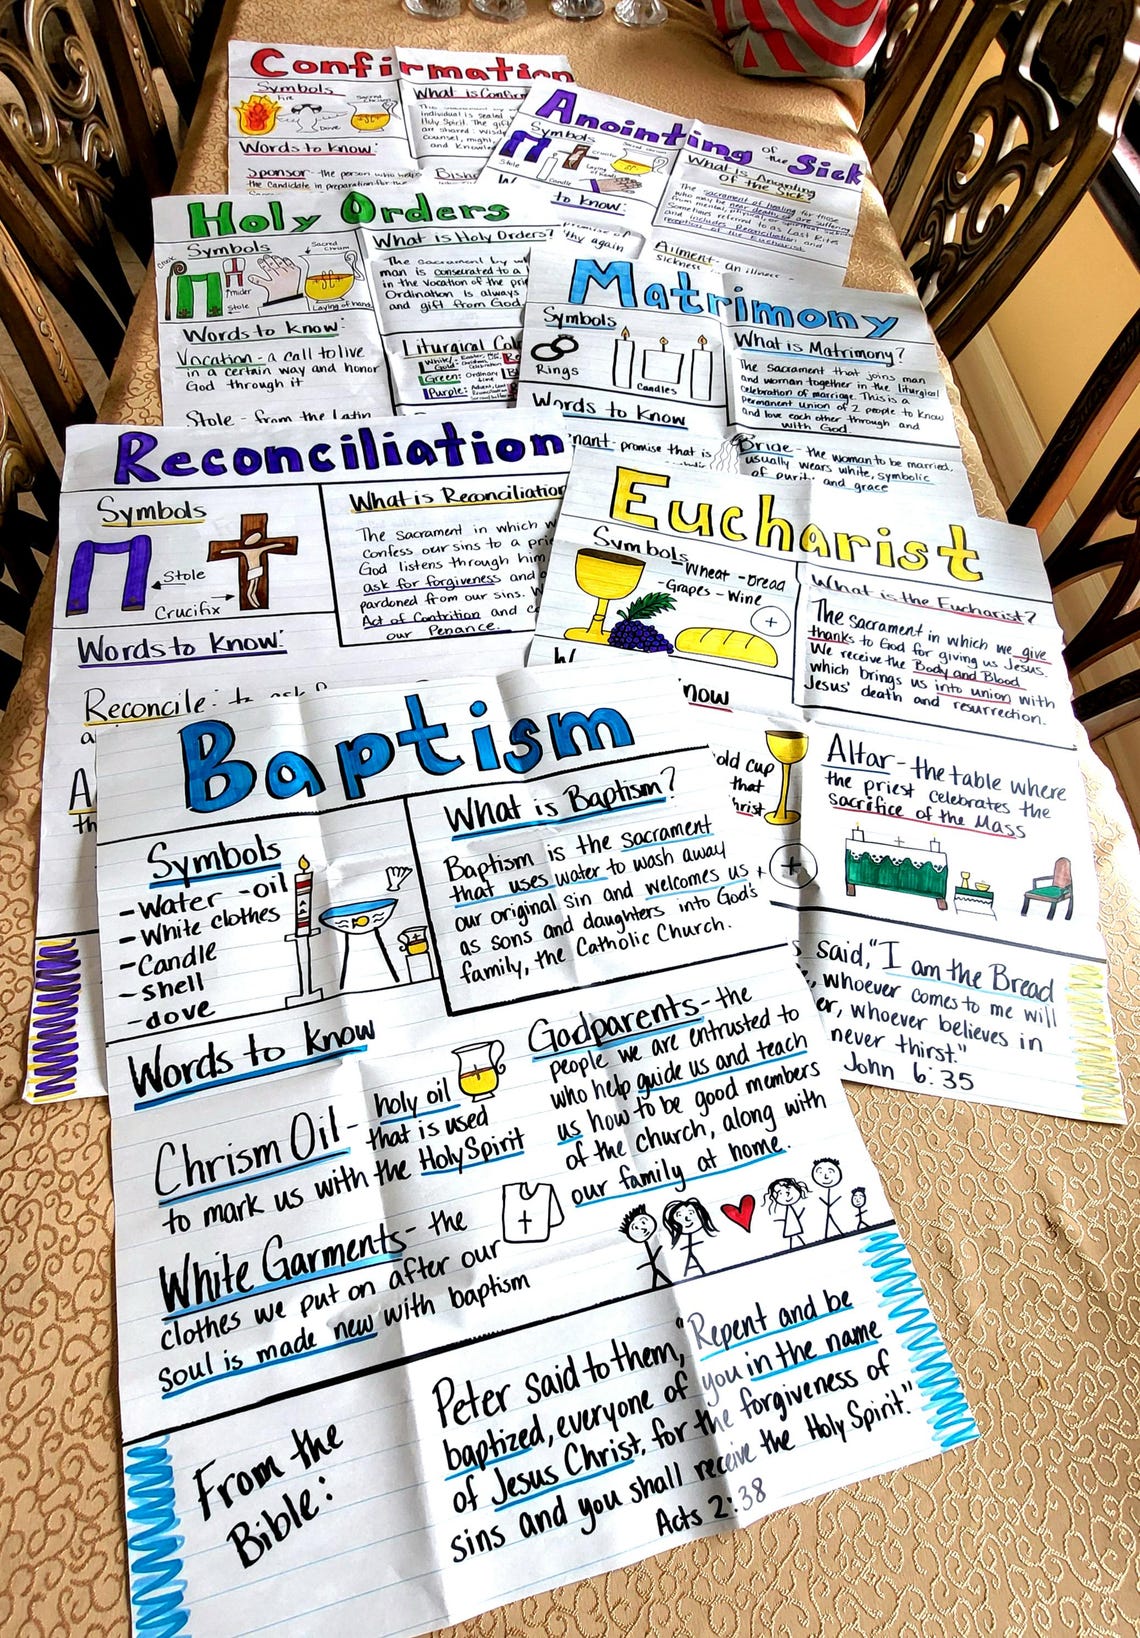 Confirmation
Symbols
Fire
Dove
Sacred
Chrism
Words to Know:
Sponsor - the person who helps
the candidate in preparation for the
What is Confirm
individual is sealed
Holy Spirit. The gift
are shared: wisd
counsel, might,
and knowle
Bisho
Anointing of the Sick
Symbols
Stole
Candle
Crucifix
Laying of
hands
to know:
promise of
thy again
What is Anointing
of the Sick?
The sacrament of healing for those
who may be near death or are suffering
from mental, physical or spiritual
Sometimes referred to as Last Rites
and includes Reconciliation and
reception of the Eucharist
Ailment - an illness
sickness
Holy Orders
Symbols
Sacred
Chrism
Stole
Laying of hands
Words to know:
Vocation - a call to live
in a certain way and honor
God through it
Stole - from the Latin
What is Holy Orders?
The Sacrament by w
man is consecrated to a l
in the vocation of the pri
Ordination is always
and gift from God
Liturgical Col
White/
Gold:
Green: Ordinary
time
Purple:
Matrimony
Symbols
Rings
Candles
Words to Know
nant - promise that is
What is Matrimony?
The Sacrament that joins man
and woman together in the liturgical
celebration of marriage. This is a
permanent union of 2 people to know
and love each other through and
with God.
Bride - the woman to be married,
usually wears white, symbolic
of purity and grace
Reconciliation
Symbols
Stole
Crucifix
Words to Know:
Reconcile: to ask
What is Reconciliation
The sacrament in which w
confess our sins to a prie
God listens through him
ask for forgiveness and
pardoned from our sins. W
Act of Contrition and c
our Penance.
Eucharist
Symbols
-Wheat -Bread
-Grapes -Wine
now
old cup
that
hrist
What is the Eucharist?
The Sacrament in which we give
thanks to God for giving us Jesus.
We receive the Body and Blood
which brings us into union with
Jesus' death and resurrection.
Altar - the table where
the priest celebrates the
sacrifice of the Mass
s said, "I am the Bread
e, whoever comes to me will
er, whoever believes in
never thirst."
John 6:35
Baptism
Symbols
-Water -oil
-White clothes
-Candle
-shell
-dove
What is Baptism?
Baptism is the Sacrament
that uses water to wash away
our original sin and welcomes us
as sons and daughters into God's
family, the Catholic Church.
Words to know
Chrism Oil - holy oil
that is used
to mark us with the Holy Spirit
White Garments - the
clothes we put on after our
soul is made new with baptism
Godparents - the
people we are entrusted to
who help guide us and teach
us how to be good members
of the church, along with
our family at home.
From the
Bible:
Peter said to them, "Repent and be
baptized, everyone of you in the name
of Jesus Christ, for the forgiveness of
sins and you shall receive the Holy Spirit."
Acts 2:38